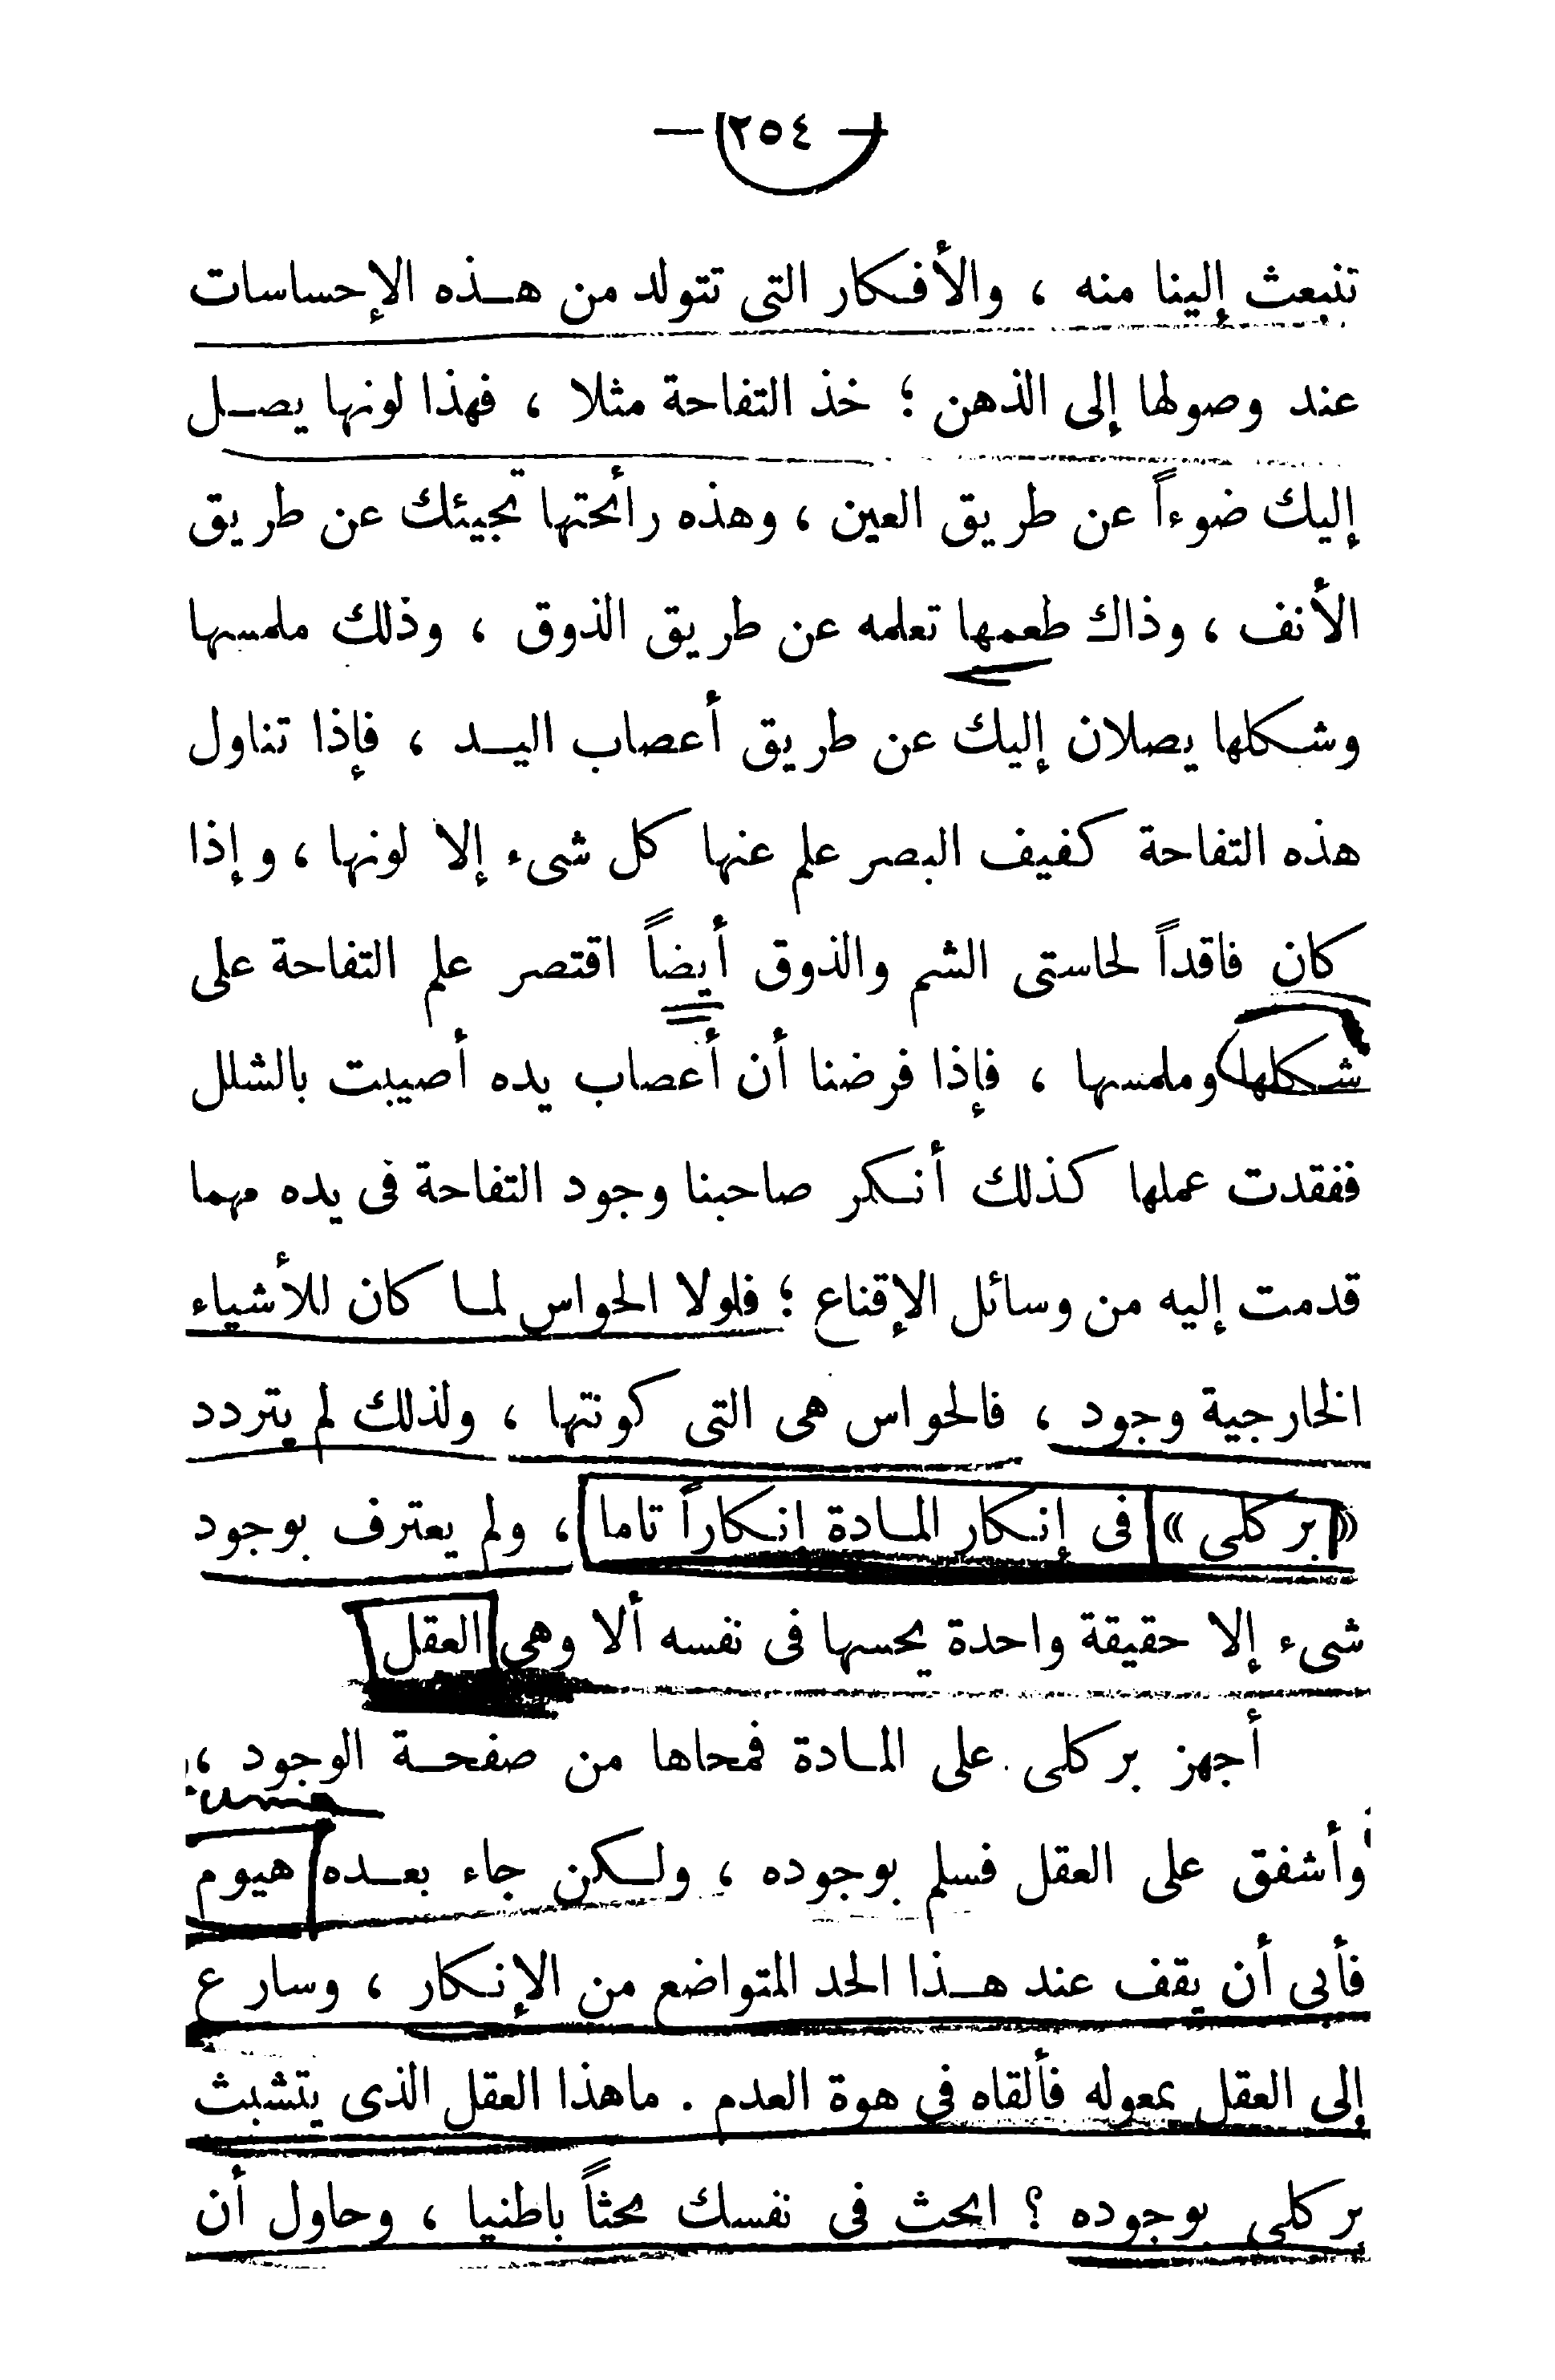 — ٢٥٤ —
تنبعث إلينا منه ، والأفكار التى تتولد من هذه الإحساسات
عند وصولها إلى الذهن ؛ خذ التفاحة مثلا ، فهذا لونها يصل
إليك ضوءاً عن طريق العين ، وهذه رائحتها تجيئك عن طريق
الأنف ، وذاك طعمها تعلمه عن طريق الذوق ، وذلك ملمسها
وشكلها يصلان إليك عن طريق أعصاب اليد ، فإذا تناول
هذه التفاحة كفيف البصر علم عنها كل شىء إلا لونها ، وإذا
كان فاقداً لحاستى الشم والذوق أيضاً اقتصر علم التفاحة على
شكلها وملمسها ، فإذا فرضنا أن أعصاب يده أصيبت بالشلل
ففقدت عملها كذلك أنكر صاحبنا وجود التفاحة فى يده مهما
قدمت إليه من وسائل الإقناع ؛ فلولا الحواس لما كان للأشياء
الخارجية وجود ، فالحواس هى التى كونتها ، ولذلك لم يتردد
«بركلى» فى إنكار المادة انكاراً تاما ، ولم يعترف بوجود
شىء إلا حقيقة واحدة يحسها فى نفسه ألا وهى العقل
أجهز بركلى على المادة فمحاها من صفحة الوجود ،
وأشفق على العقل فسلم بوجوده ، ولكن جاء بعده هيوم
فأبى أن يقف عند هذا الحد المتواضع من الإنكار ، وسارع
إلى العقل بمعوله فألقاه فى هوة العدم . ماهذا العقل الذى يتشبث
بركلى بوجوده ؟ ابحث فى نفسك بحثاً باطنيا ، وحاول أن